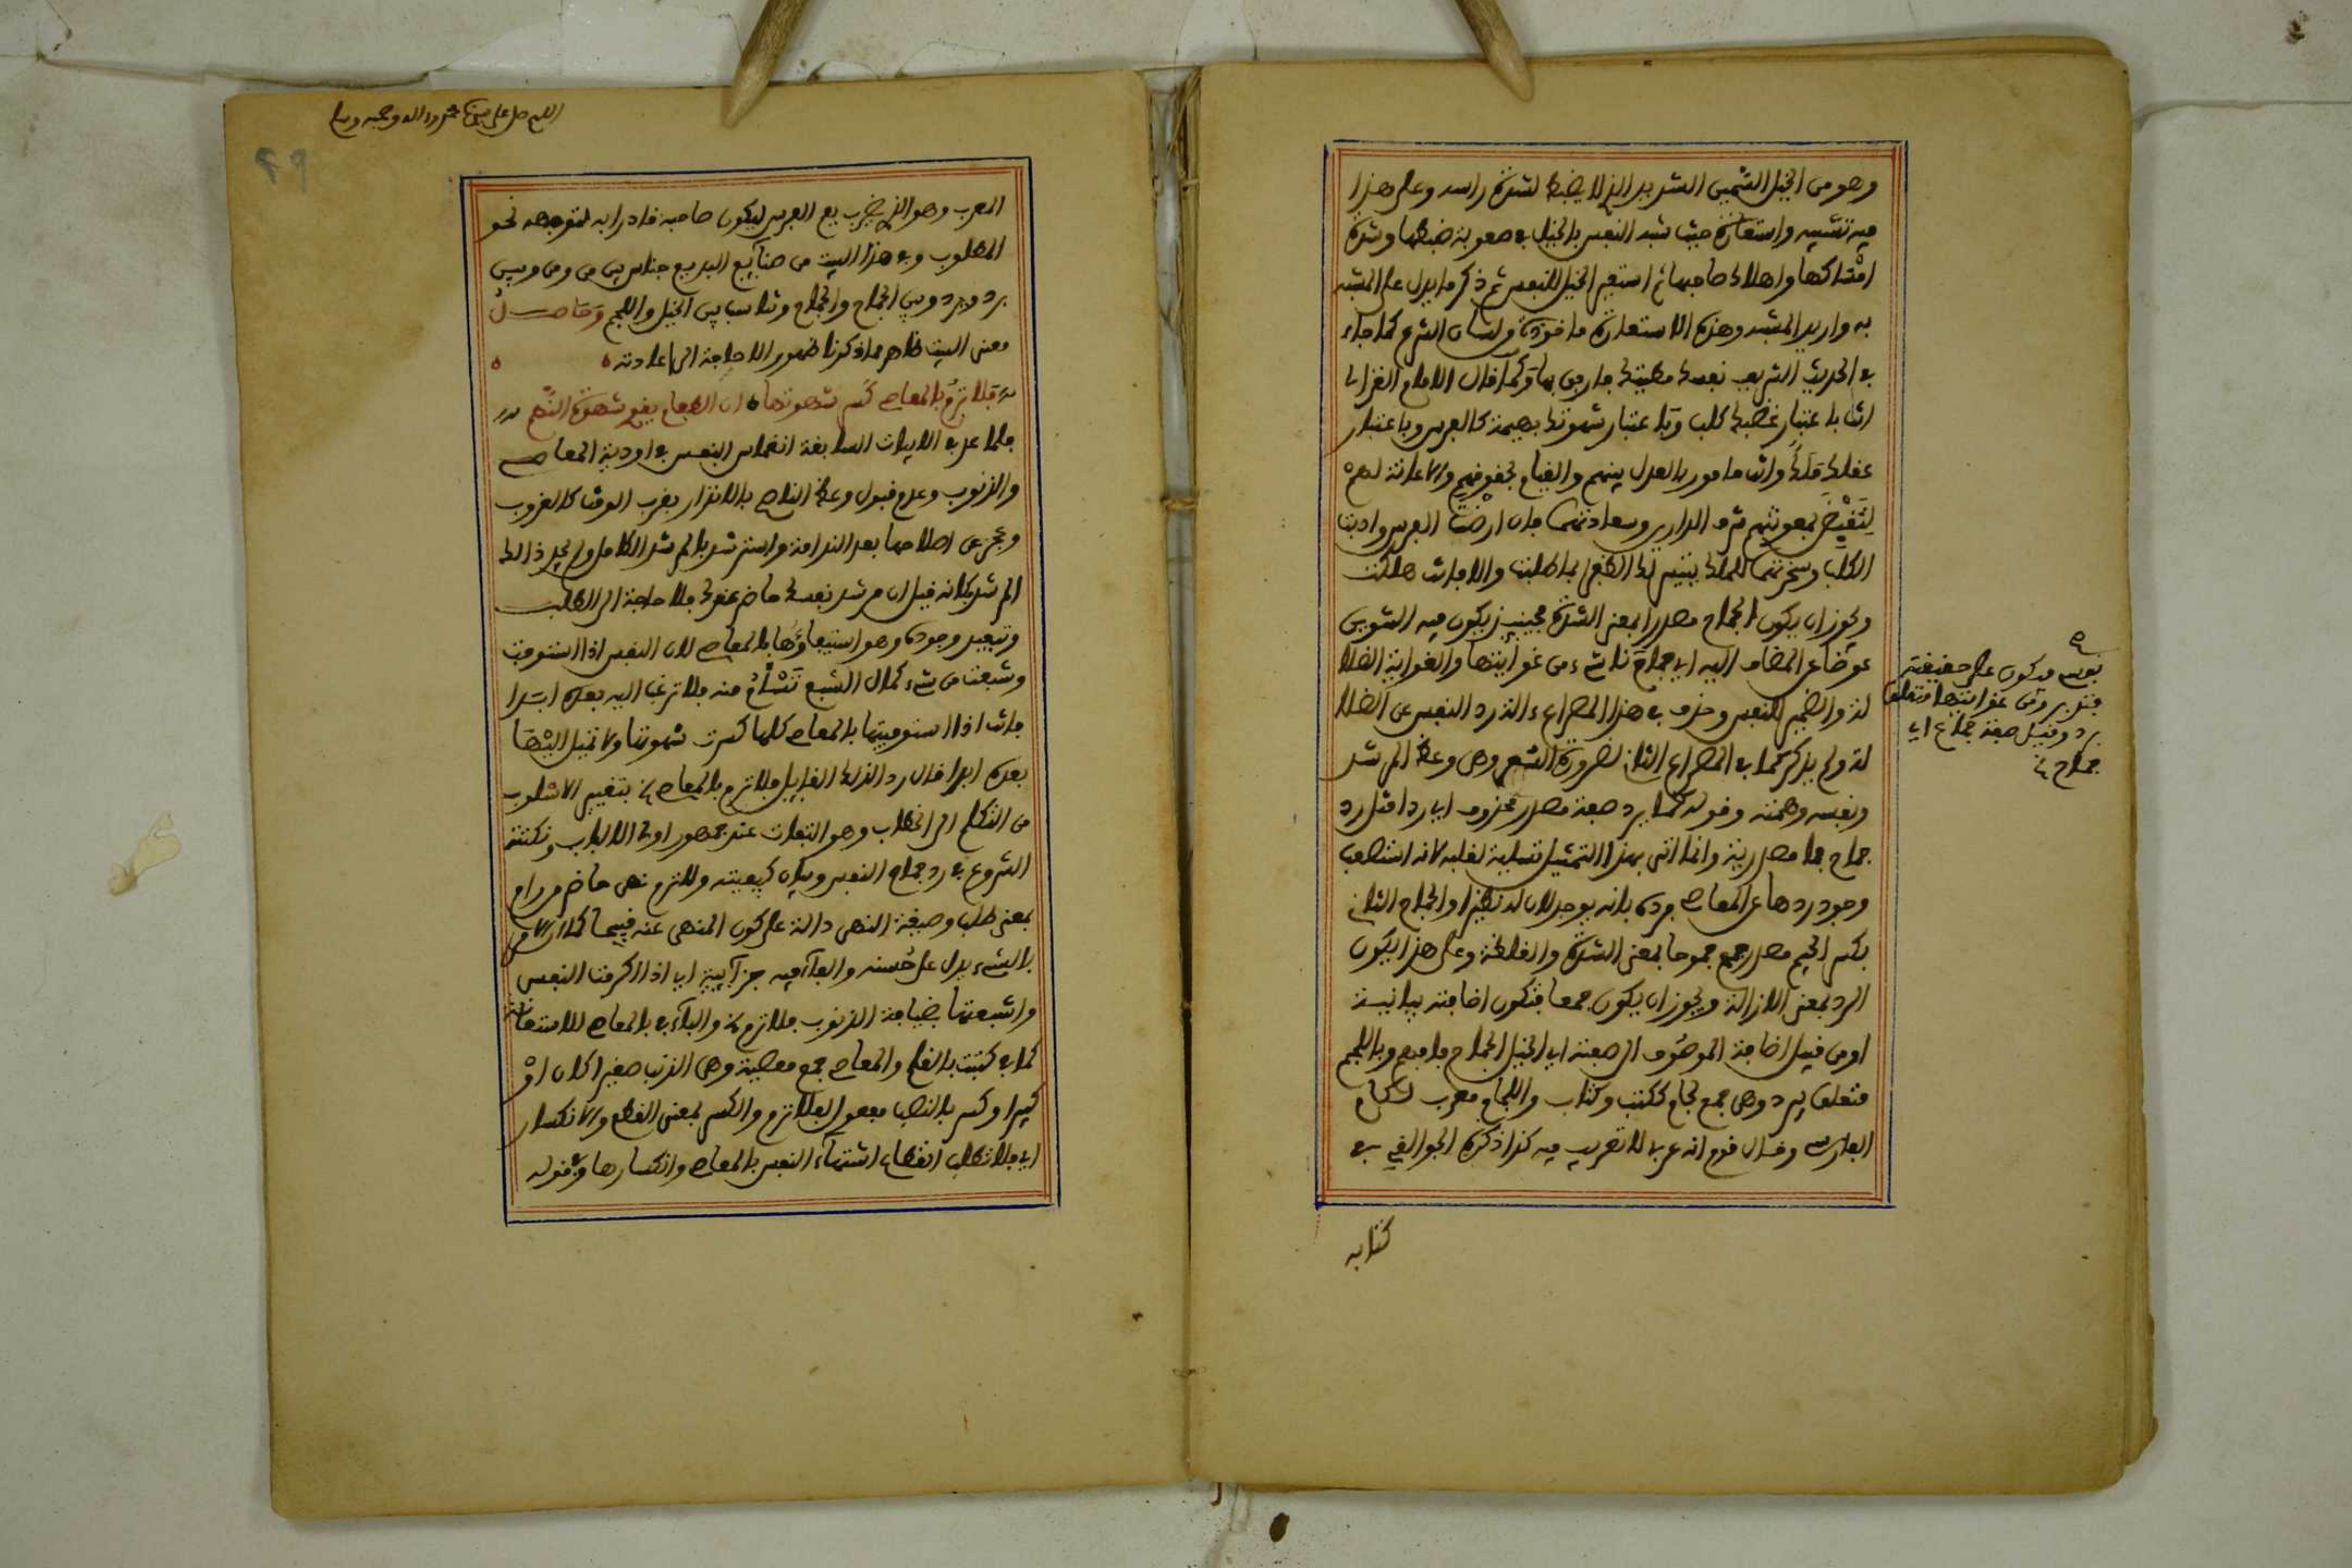 وهو من الخيل الشمس الشديد الذي لا يضبط لشدة راسه وعلى هذا
فيه تشبيه واستعارة حيث شبه النفس بالخيل في صعوبة ضبطها وشدة
امساكها واهلاك صاحبها ثم استعير الخيل للنفس ثم ذكر ما يدل على المشبه
به واريد المشبه وهذه الاستعارة ماخوذة من لسان الشرع كما جاء
في الحديث الشريف نفسك مطيتك فارفق بها وكما قال الامام الغزالي
انت باعتبار غضبك كلب وباعتبار شهوتك بهيمة كالفرس وباعتبار
عقلك ملك وانت مامور بالعدل بينهم والقيام بحقوقهم والاعانة لهم
لتقبض بمعونتهم شرف الدارين وسعادتهما فان ارضت الفرس وادبت
الكلب وسخرتهما للملك يتيسر لك الظفر بما طلبت والا فانت هلكت
ويجوز ان يكون الجماح مصدرا بمعنى الشدة فحينئذ يكون فيه التنوين
عوضا عن المضاف اليه اي جماح ناشيء من غوايتها والغواية الضلا
لة والضمير للنفس وحذف في هذا المصراع الذرد النفس عن الضلا
لة ولم يذكر كما في المصراع الثاني لضرورة الشعر وهي وعظ المرشد
ونفسه وهمته وقوله كما يرد صفة مصدر محذوف اي ردا مثل رد
جماح فما مصدرية وانما اتى بهذا التمثيل تسلية لقلبه لانه استصعب
وجود ردها عن المعاصي فرده بانه يوجد لان له نظيرا والجماح الثاني
بكسر الجيم مصدر جمح جموحا بمعنى الشدة والغلظة وعلى هذا يكون
الرد بمعنى الازالة ويجوز ان يكون جمعا فتكون اضافته بيانية
او من قبيل اضافة الموصوف الى صفته اي الخيل الجماح فافهم وباللجم
متعلق بيرد وهي جمع لجام ككتب وكتاب واللجام معرب لكام
الفارسي وقال قوم انه عربي لا تعريب فيه كذا ذكره الجواليقي في
كتابه
نفسي فيكون على حقيقته
فتدبر ومن غوايتها متعلق
برد وقيل صفة جماح اي
جماح
اللهم صل على سيدنا محمد واله وصحبه وسلم
49
المعرب وهو الذي يضرب بفم الفرس ليكون صاحبه قادرا به لتوجهه نحو
المطلوب وفي هذا البيت من صنايع البديع جناس بين من ومن وبين
يرد ويرد وبين الجماح والجماح وتناسب بين الخيل واللجم وحاصل
معنى البيت ظاهر مما ذكرنا ظهورا لا حاجة الى اعادته
فلا ترم بالمعاصي كسر شهوتها ان الطعام يقوي شهوة النهم
فلما عرف في الابيات السابقة انغماس النفس في اودية المعاصي
والذنوب وعدم قبول وعظ الناصح بالانذار بقرب الوقت كالغروب
وعجز عن اصلاحها بعد الندامة واسترشد بالمرشد الكامل ولم يجد ذالك
المرشد فكانه قيل ان مرشد نفسك حاضر عندك فلا حاجة الى الطلب
وتيسير وجوده وهو استيفاؤها بالمعاصي لان النفس اذا استوفيت
وشبعت من شيء كمال الشبع تسأم منه فلا ترغب اليه بعده ابدا
فانت اذا استوفيتها بالمعاصي كلها كسرت شهوتها ولا تميل اليها
بعده ابدا فقال رد الذلك القايل فلا ترم بالمعاصي بتغيير الاسلوب
من التكلم الى الخطاب وهو التفات عند جمهور اولي الالباب ونكتته
الشروع في رد جماح النفس وبيان كيفيته ولا ترم نهي حاضر من رام
بمعنى طلب وصيغة النهي دالة على كون المنهي عنه قبيحا كما ان الامر
بالشيء يدل على حسنه والفاء فيه جزائية اي اذا اكرمت النفس
واشبعتها بضيافة الذنوب فلا ترم والباء في بالمعاصي للاستعانة
كما في كتبت بالقلم والمعاصي جمع معصية وهي الذنب صغيرا كان او
كبيرا وكسر بالنصب مفعول فلا ترم والكسر بمعنى القطع والانكسار
اي فلا تطلب انقطاع اشتهاء النفس بالمعاصي وانكسارها وفي قوله